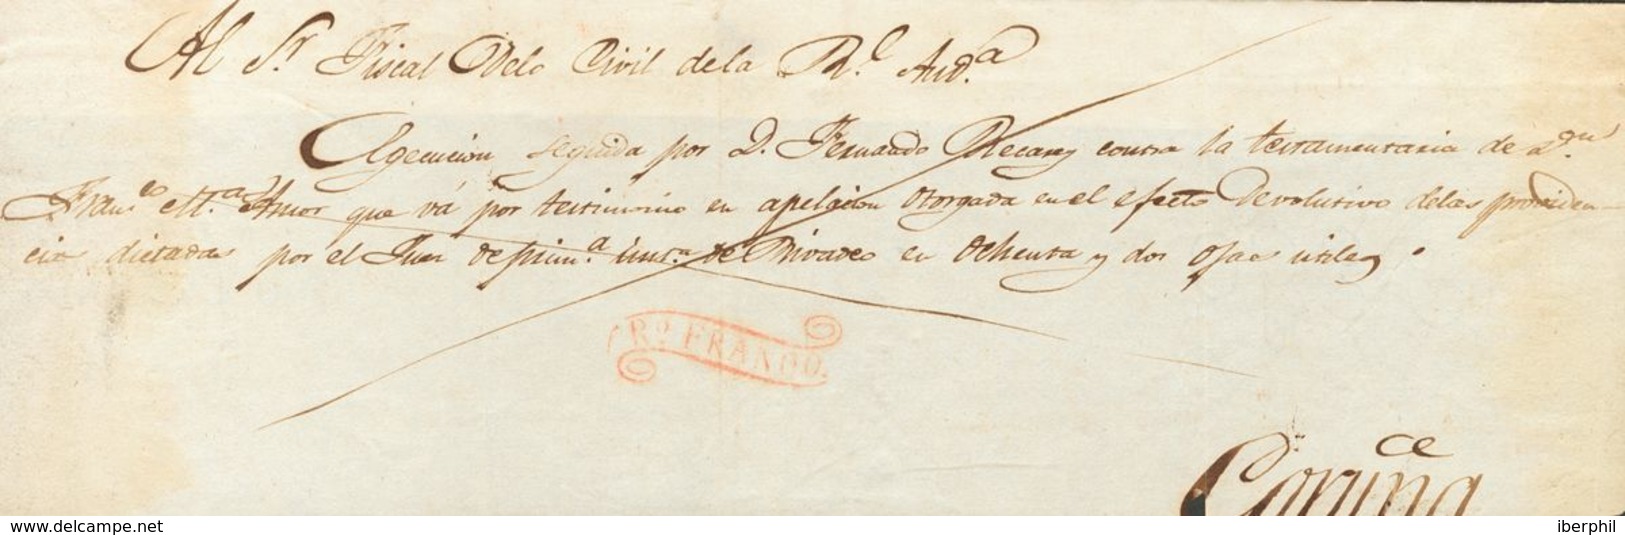 Al Sr. Fiscal Delo Civil dela Rl. Auda.
Egecucion seguida por D. Fernando Recarey contra la testamentaria de Dn.
Franco. Ma. Amor que vá por testimonio en apelacion Otorgada en el efecto Devolutivo delas providen-
cias dictadas por el Juez de prima. insta. de Rivadeo en Ochenta y dos ojas utiles.
Ro. FRANCO.
ce
Coruña
www.delcampe.net
iberphil